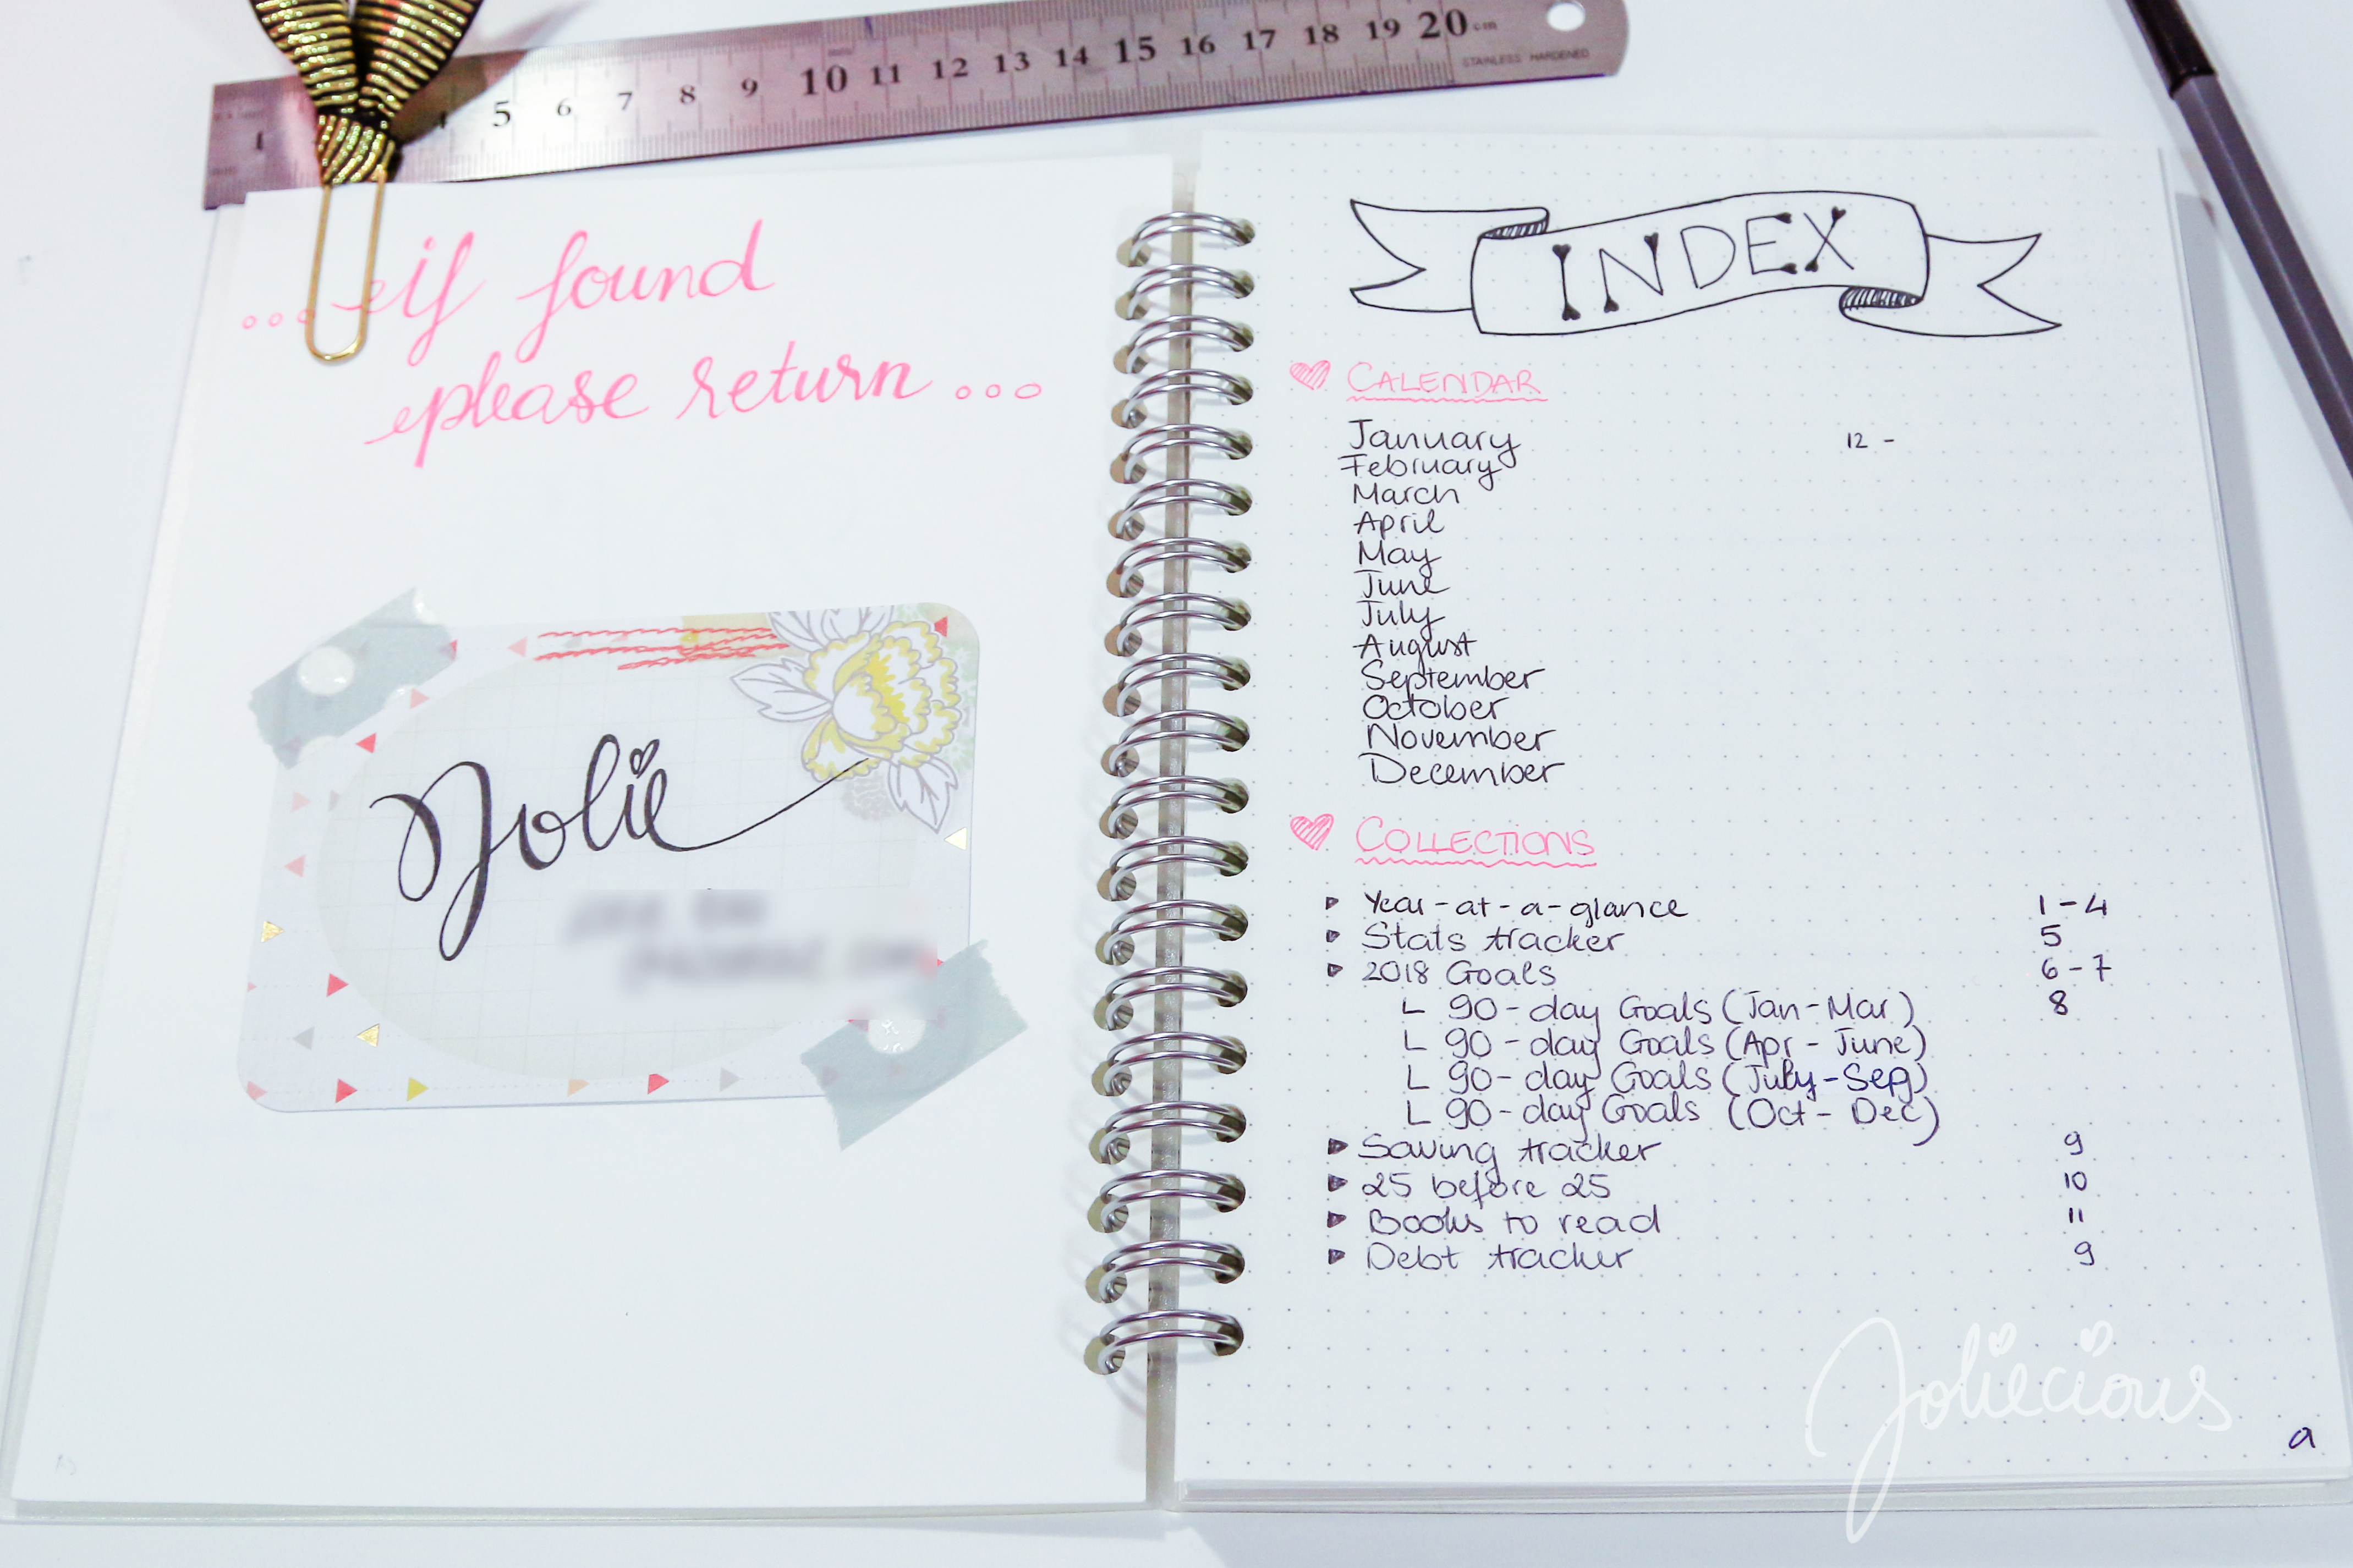 1 4 5 6 7 8 9 10 11 12 13 14 15 16 17 18 19 20 cm
STAINLESS HARDENED
... if found
please return ...
Jolie
INDEX
CALENDAR
January 12 -
February
March
April
May
June
July
August
September
October
November
December
COLLECTIONS
Year-at-a-glance 1-4
Stats tracker 5
2018 Goals 6-7
90-day Goals (Jan-Mar) 8
90-day Goals (Apr-June)
90-day Goals (July-Sep)
90-day Goals (Oct-Dec)
Saving tracker 9
25 before 25 10
Books to read 11
Debt tracker 9
Joliecious
a